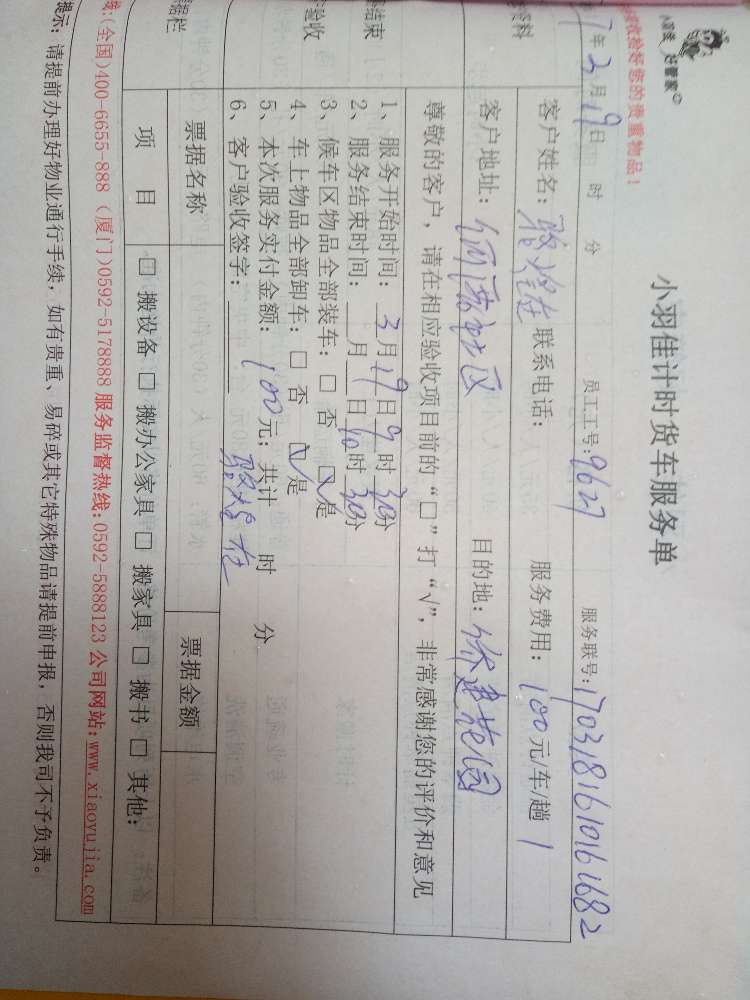 小羽佳 好管家
您的贵重物品！
小羽佳计时货车服务单
7年3月19日 时 分 员工工号：9627 服务联号：1703181610161682
客户姓名： 联系电话： 服务费用：100元/车/趟 1
客户地址： 社区 目的地： 建花园
尊敬的客户，请在相应验收项目前的“□”打“√”，非常感谢您的评价和意见
1、服务开始时间：3月19日9时30分
2、服务结束时间：月 日10时30分
3、候车区物品全部装车：□ 否 ☑是
4、车上物品全部卸车：□ 否 ☑是
5、本次服务实付金额：100元；共计 时 分
6、客户验收签字：
结束
验收
票据名称 票据金额
项 目 □ 搬设备 □ 搬办公家具 □ 搬家具 □ 搬书 □ 其他：
线：(全国)400-6655-888 (厦门)0592-5178888 服务监督热线：0592-5888123 公司网站：www.xiaoyujia.com
提示：请提前办理好物业通行手续，如有贵重、易碎或其它特殊物品请提前申报，否则我司不予负责。